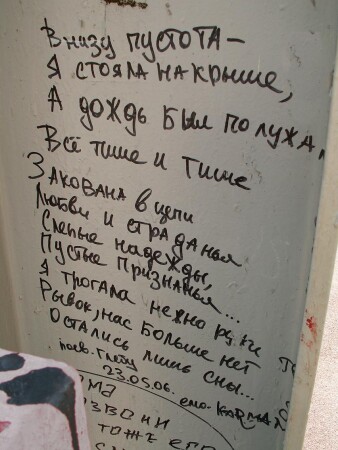 Внизу пустота –
Я стояла на крыше,
А дождь был по лужа
Всё тише и тише
Закована в цепи
Любви и страданья
Слепые надежды,
Пустые признанья...
Я трогала нежно руки
Рывок, нас больше нет
Остались лишь сны...
посв. Глебу
23.05.06. emo-karma
звони
тоже его